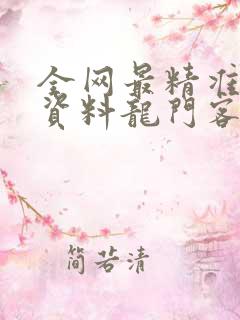 全网最精准
資料龍門客
简若清